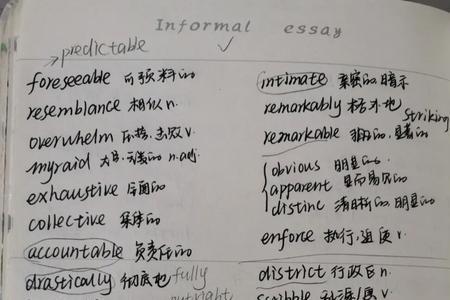 Informal essay
→predictable
foreseeable 可预料的
resemblance 相似 n.
overwhelm 压垮,击败 v.
myraid 大量,无数的 n.adj.
exhaustive 全面的
collective 集体的
accountable 负责任的
drastically 彻底地 fully
outright,
intimate 亲密的,暗示
remarkably 格外地
striking
remarkable 非凡的,显著的
obvious 明显的
apparent 显而易见的
distinc 清晰的,明显的
enforce 执行,强迫 v.
district 行政区 n.
scribble